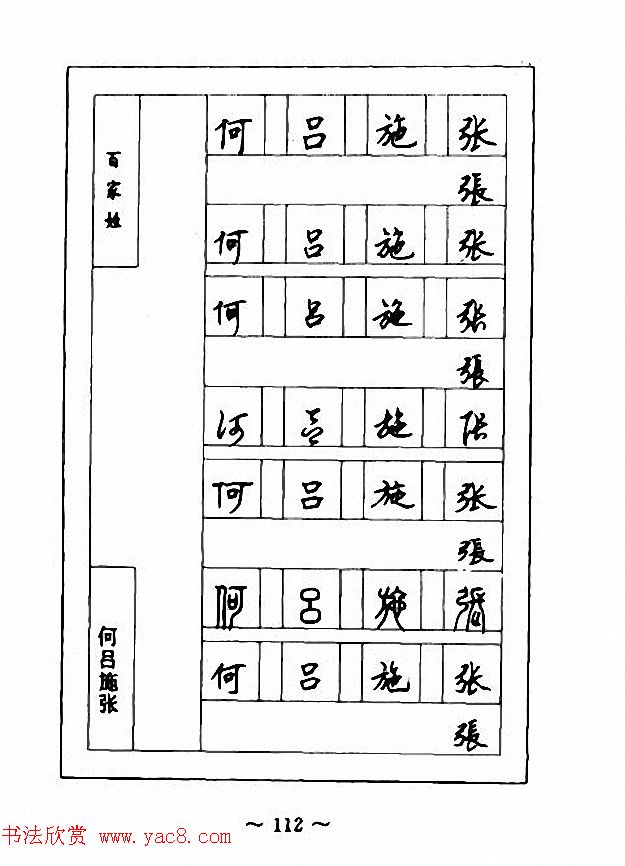 百家姓
何吕施张
何 吕 施 张
張
何 吕 施 张
何 吕 施 张
張
何 吕 施 张
何 吕 施 张
張
何 吕 施 張
何 吕 施 张
張
~ 112 ~
书法欣赏 www.yac8.com